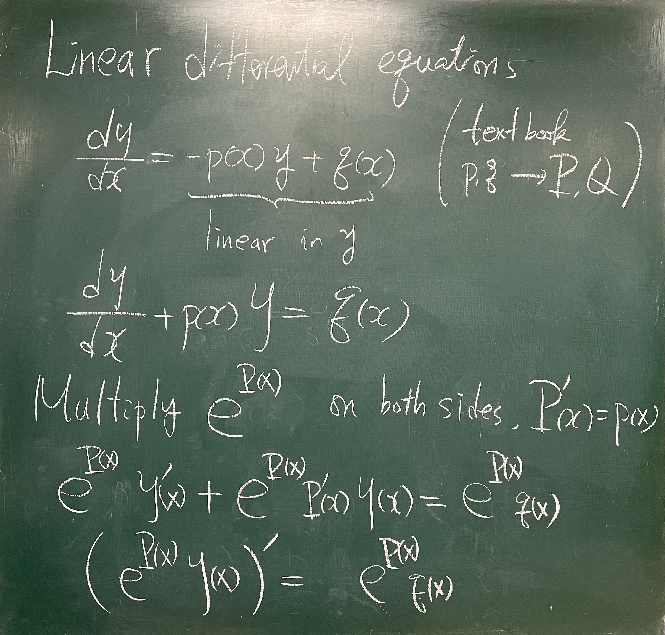 Linear differential equations
dy/dx = -p(x) y + q(x) (textbook p, q → P, Q)
linear in y
dy/dx + p(x) y = q(x)
Multiply e^P(x) on both sides. P'(x) = p(x)
e^P(x) y'(x) + e^P(x) P'(x) y(x) = e^P(x) q(x)
(e^P(x) y(x))' = e^P(x) q(x)